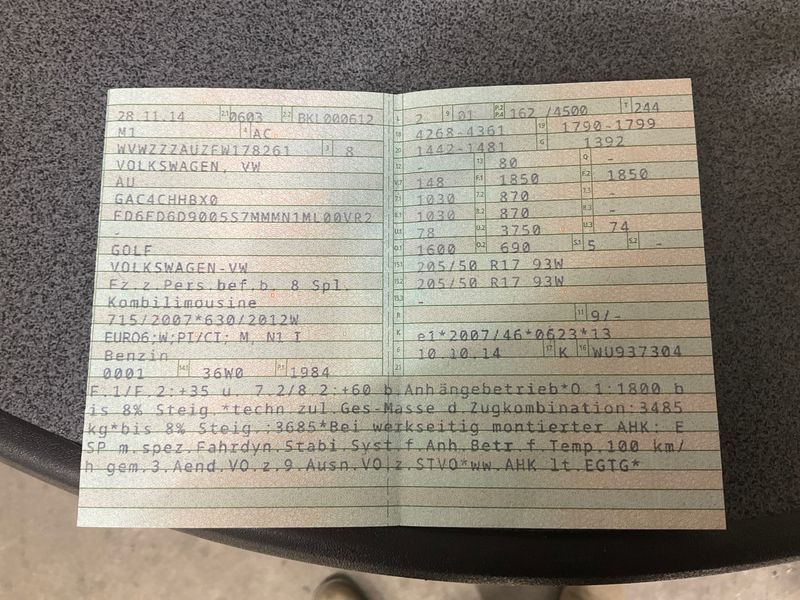 28.11.14 2.1 0603 2.2 BKL000612
M1 4 AC
WVWZZZAUZFW178261 3 8
VOLKSWAGEN, VW
AU
GAC4CHHBX0
FD6FD6D9005S7MMMN1ML00VR2
-
GOLF
VOLKSWAGEN-VW
Fz.z.Pers.bef.b. 8 Spl.
Kombilimousine
715/2007*630/2012W
EURO6;W;PI/CI; M, N1 I
Benzin
0001 14.1 36W0 P.1 1984
L 2 9 01 P.2 P.4 162 /4500 T 244
18 4268-4361 19 1790-1799
20 1442-1481 G 1392
12 - 13 80 Q -
V.7 148 F.1 1850 F.2 1850
7.1 1030 7.2 870 7.3 -
8.1 1030 8.2 870 8.3 -
U.1 78 U.2 3750 U.3 74
O.1 1600 O.2 690 S.1 5 S.2 -
15.1 205/50 R17 93W
15.2 205/50 R17 93W
15.3 -
R 11 9/-
K e1*2007/46*0623*13
6 10.10.14 17 K 16 WU937304
21
F.1/F.2:+35 u. 7.2/8.2:+60 b.Anhängebetrieb*O.1:1800 b
is 8% Steig.*techn.zul.Ges-Masse d.Zugkombination:3485
kg*bis 8% Steig.:3685*Bei werkseitig montierter AHK: E
SP m.spez.Fahrdyn.Stabi.Syst.f.Anh.Betr.f.Temp.100 km/
h gem.3.Aend.VO.z.9.Ausn.VO.z.STVO*ww.AHK lt.EGTG*